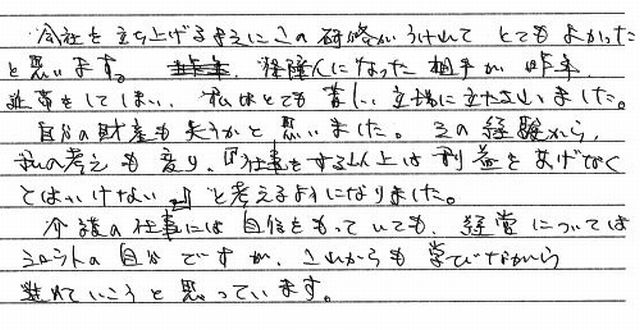 会社を立ち上げるまえにこの研修がうけれて とてもよかった
と思います。 昨年、経障人になった相手が昨年、
逃亡をしてしまい、私はとても苦しい立場に立たされました。
自分の財産も失うかと思いました。その経験から、
私の考えも変り、『仕事をする以上は利益をあげなく
てはいけない』と考えるようになりました。
介護の仕事には自信をもっていても、経営については
シロウトの自分ですが、これからも学びながら
進めていこうと思っています。